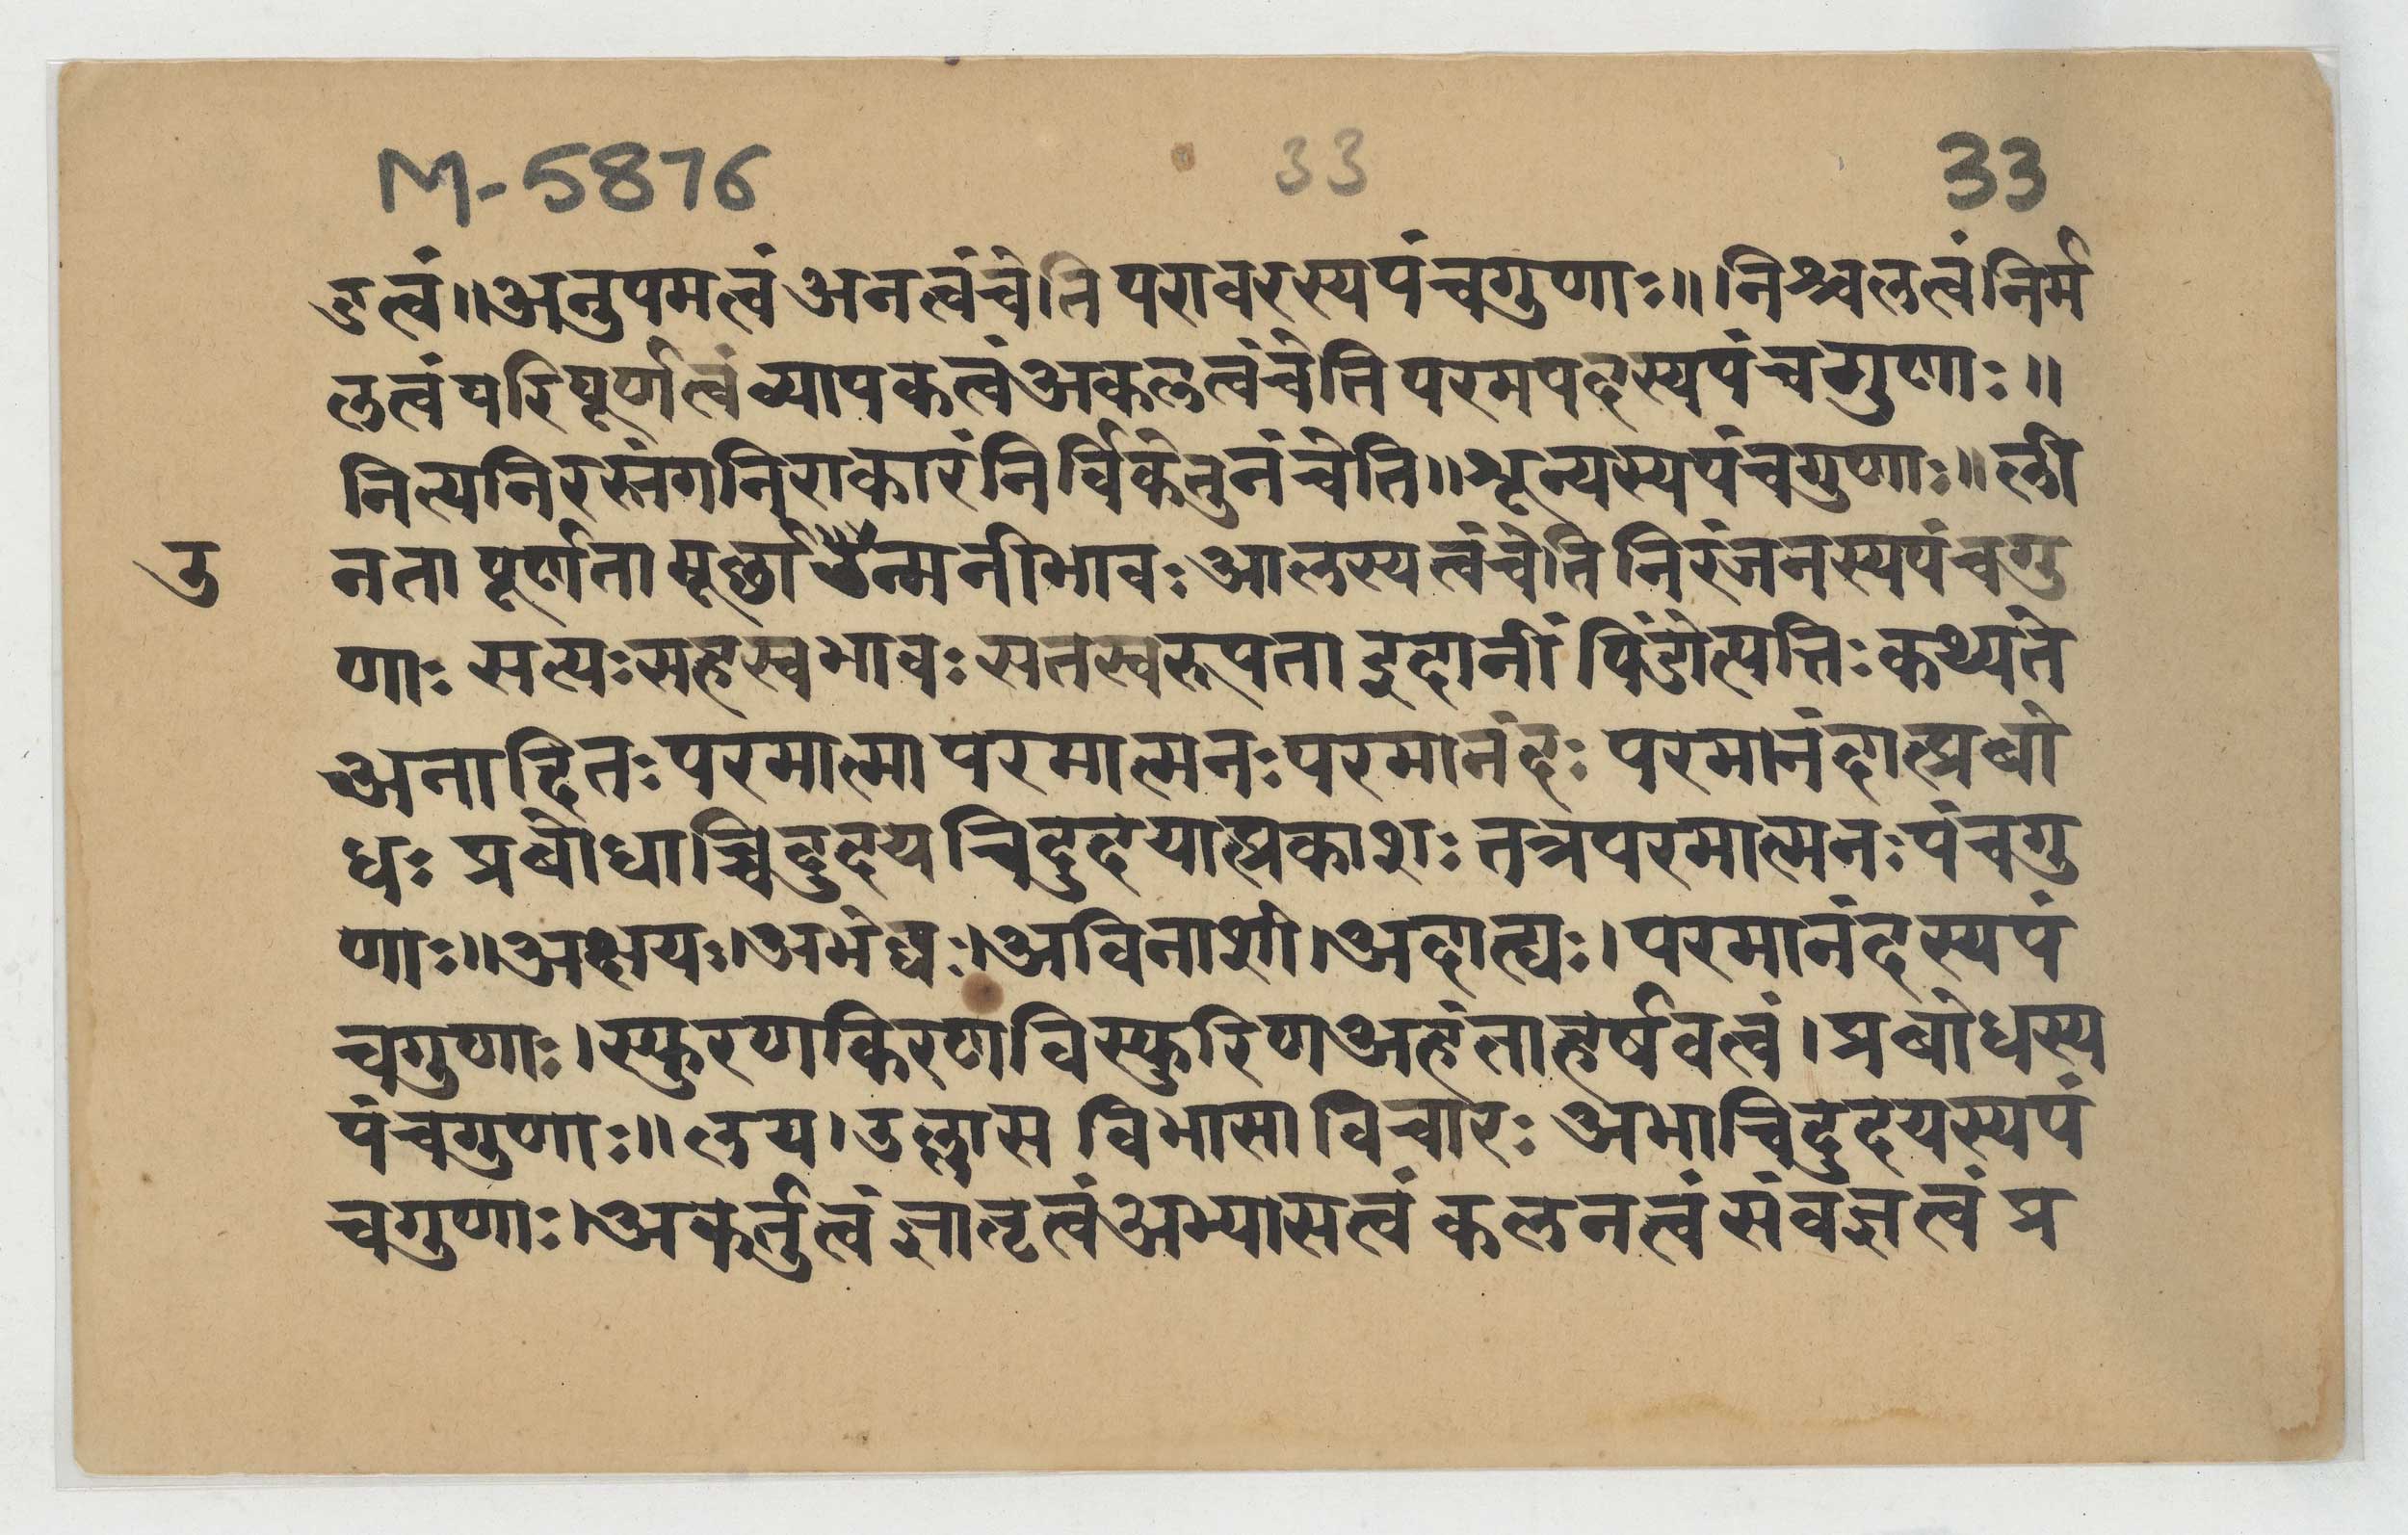 M-5876 33 33
डत्वं॥अनुपमत्वं अनत्वंचेति परावरस्यपंचगुणाः॥ निश्चलत्वं निर्म
लत्वं परिपूर्णत्वं व्यापकत्वंअकलत्वंचेति परमपदस्यपंचगुणाः॥
नित्यनिरस्नंगनिराकारंनिर्विकेतुनंचेति॥श्रून्यस्यपंचगुणाः॥ ली
नता पूर्णता मूर्छा उन्मनीभावः आलस्यत्वंचेति निरंजनस्यपंचगु
उ
णाः सत्यःसहस्वभावः सतस्वरूपता इदानीं पिंडोत्पत्तिः कथ्यते
अनादितः परमात्मा परमात्मनः परमानंदः परमानंदात्प्रबो
धः प्रबोधाच्चिदुदय चिदुदयात्प्रकाशः तत्रपरमात्मनः पंचगु
णाः॥अक्षयः।अभेद्यः।अविनाशी।अदाह्यः। परमानंदस्यपं
चगुणाः। स्फुरणकिरणविस्फुरिणअहंताहर्षवत्वं। प्रबोधस्य
पंचगुणाः॥ लय।उल्लास विभासा विचारः अभाचिदुदयस्यपं
चगुणाः।अकर्तुत्वं ज्ञातृत्वंअभ्यासत्वं कलनत्वं संवज्ञत्वं प्र